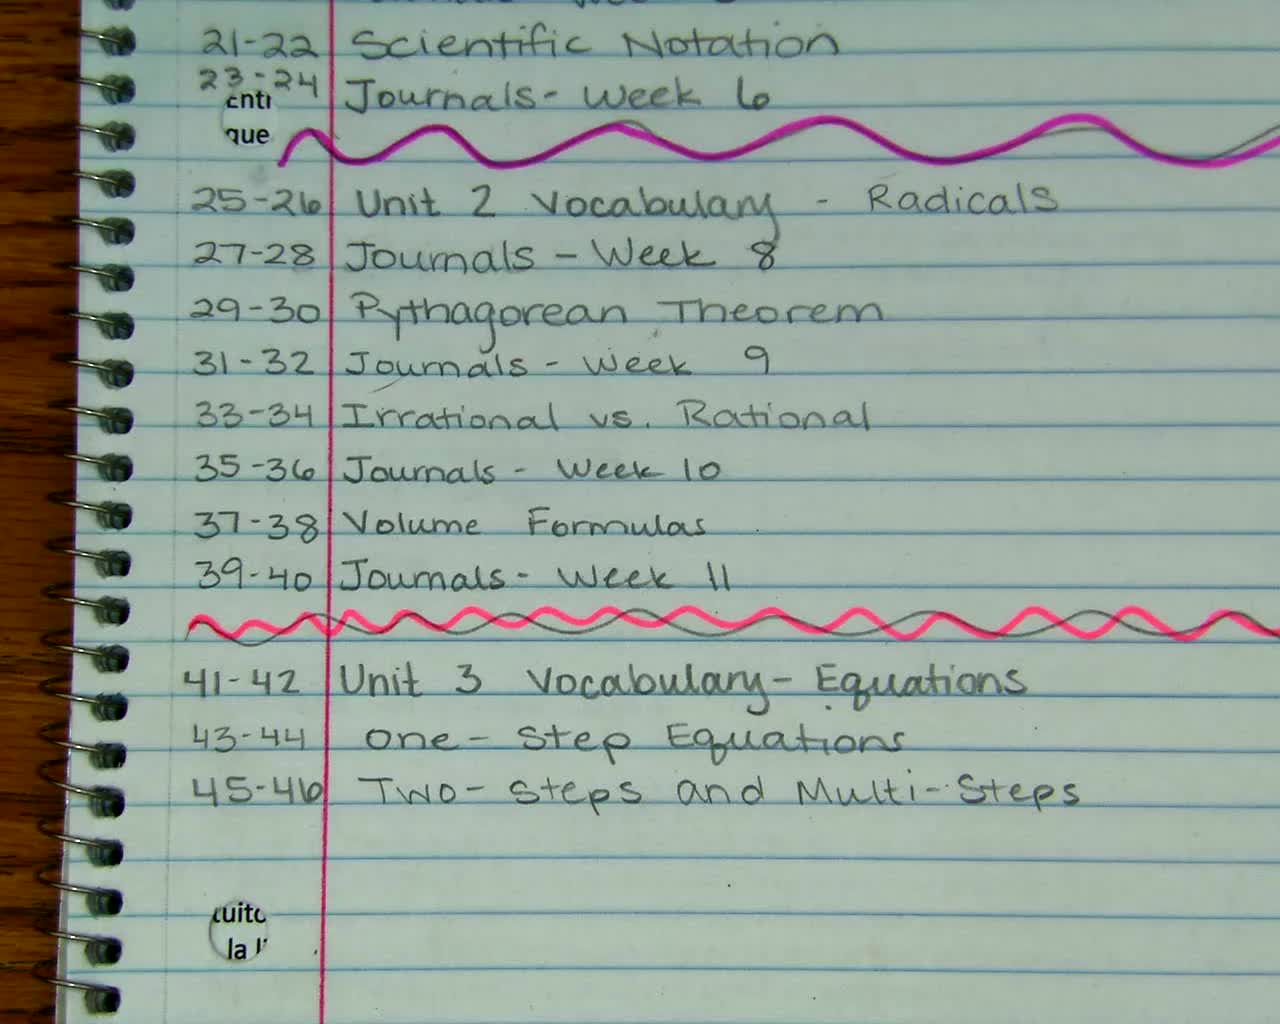 21-22 Scientific Notation
23-24 Journals- Week 6
que
25-26 Unit 2 Vocabulary - Radicals
27-28 Journals - Week 8
29-30 Pythagorean Theorem
31-32 Journals - Week 9
33-34 Irrational vs. Rational
35-36 Journals - Week 10
37-38 Volume Formulas
39-40 Journals- Week 11
41-42 Unit 3 Vocabulary- Equations
43-44 One- Step Equations
45-46 Two- Steps and Multi-Steps
la